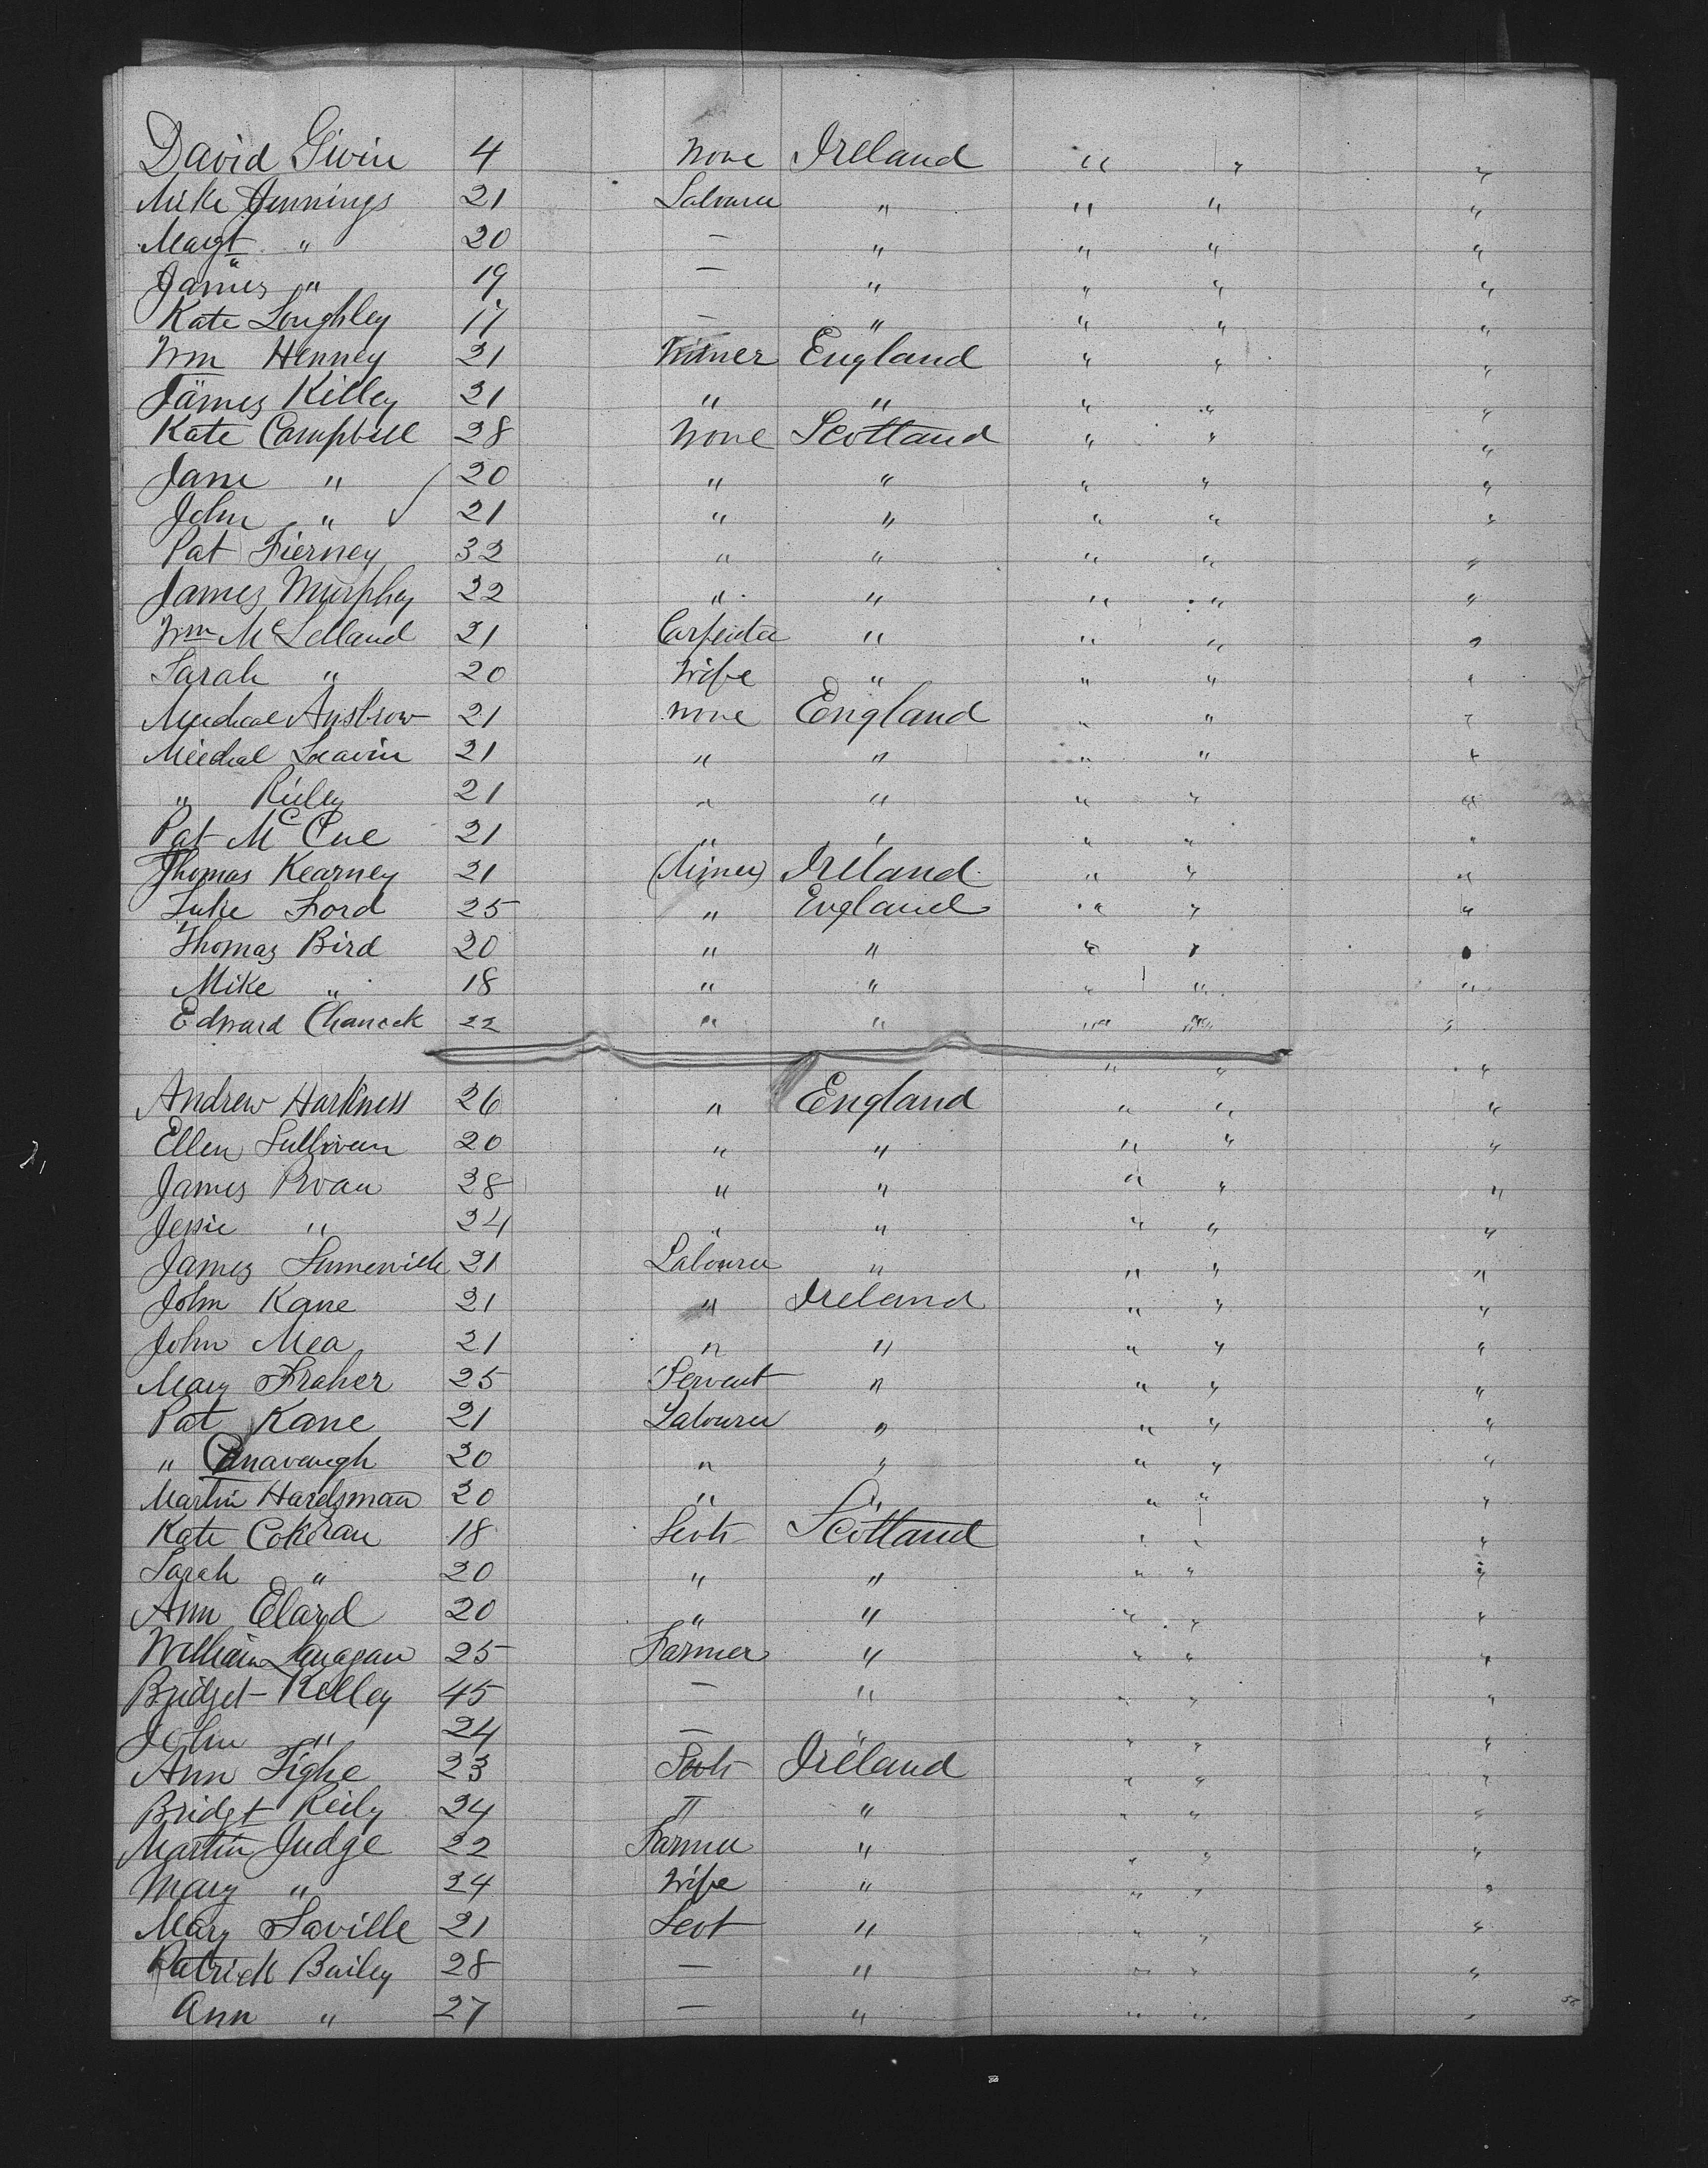 David Givin 4 None Ireland " " "
Mike Jennings 21 Labourer " " " "
Margt " 20 — " " " "
James " 19 — " " " "
Kate Loughley 17 — " " " "
Wm Henney 21 Miner England " " "
James Killey 21 " " " " "
Kate Campbell 28 None Scotland " " "
Jane " 20 " " " " "
John " 21 " " " " "
Pat Tierney 32 " " " " "
James Murphy 22 " " " " "
Wm McLelland 21 Carpenter " " " "
Sarah " 20 Wife " " " "
Micheal 21 None England " " "
Miechal 21 " " " " "
" Riley 21 " " " " "
Pat McCue 21 " " " " "
Thomas Kearney 21 (Miner) Ireland " " "
Luke Ford 25 " England " " "
Thomas Bird 20 " " " " "
Mike " 18 " " " " "
Edward Chanock 22 " " " " "
" " "
Andrew Harkness 26 " England " " "
Ellen Sullivan 20 " " " " "
James 28 " " " " "
Jessie " 24 " " " " "
James 21 Labourer " " " "
John Kane 21 " Ireland " " "
John Mea 21 " " " " "
Mary Fraher 25 Servent " " " "
Pat Kane 21 Labourer " " " "
" Canavaugh 20 " " " " "
Martin Hardsman 20 " " " " "
Kate Cokeran 18 Scotland " " "
Sarah " 20 " " " " "
Ann Elard 20 " " " " "
William Lanagan 25 Farmer " " " "
Bridget Kelley 45 — " " " "
John " 24 — " " "
Ann Tighe 23 Ireland " " "
Bridgt Reily 24 " " " " "
Martin Judge 22 Farmer " " " "
Mary " 24 Wife " " " "
Mary Saville 21 Scot " " " "
Patrick Bailey 28 — " " " "
Ann " 27 — " " " "